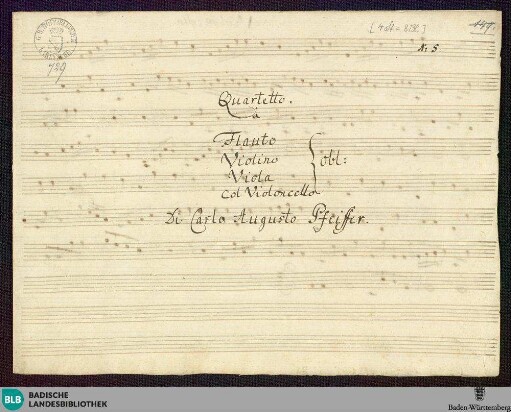 N: 5
729
Quartetto.
à
Flauto
Violino
Viola
Col Violoncello
obl:
Di Carlo Augusto Pfeiffer.
BLB
BADISCHE
LANDESBIBLIOTHEK
Baden-Württemberg